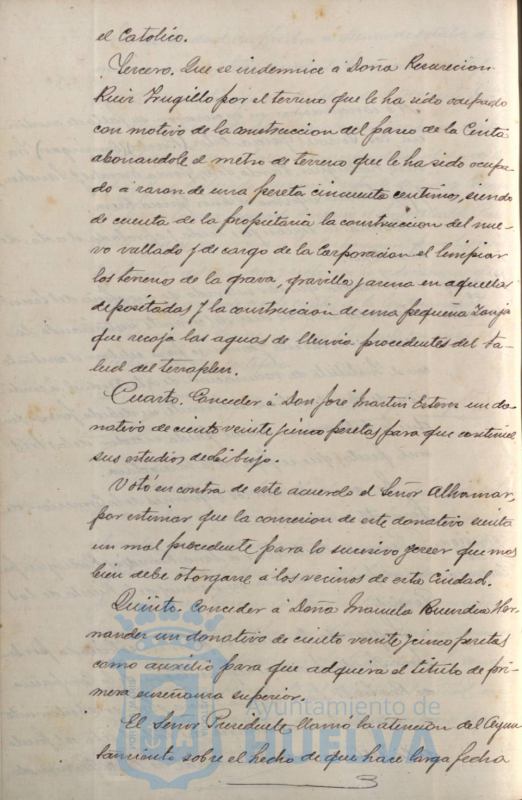 el Católico.
Tercero. Que se indemnice á Doña Resurecion
Ruiz Trugillo por el terreno que le ha sido ocupado
con motivo de la construccion del paseo de la Cinta
abonandole el metro de terreno que le ha sido ocupa-
do á razon de una peseta cincuenta centimos, siendo
de cuenta de la propietaria la construccion del nue-
vo vallado y de cargo de la Corporacion el limpiar
los terrenos de la grava, gravilla y arena en aquellos
depositadas y la construccion de una pequeña zanja
que recoja las aguas de lluvia procedentes del ta-
lud del terraplen.
Cuarto. Conceder á Don José Martin Esteve un do-
nativo de ciento veinte y cinco pesetas para que continue
sus estudios de dibujo.
Votó en contra de este acuerdo el Señor Alhamar,
por estimar que la concesion de este donativo sienta
un mal precedente para lo sucesivo y creer que mas
bien debe otorgarse á los vecinos de esta Ciudad.
Quinto. Conceder á Doña Manuela Buendia Her-
nandez un donativo de ciento veinte y cinco pesetas
como auxilio para que adquiera el título de pri-
mera enseñanza superior.
El Señor Presidente llamó la atención del Ayun-
tamiento sobre el hecho de que hace larga fecha
Ayuntamiento de
HUELVA